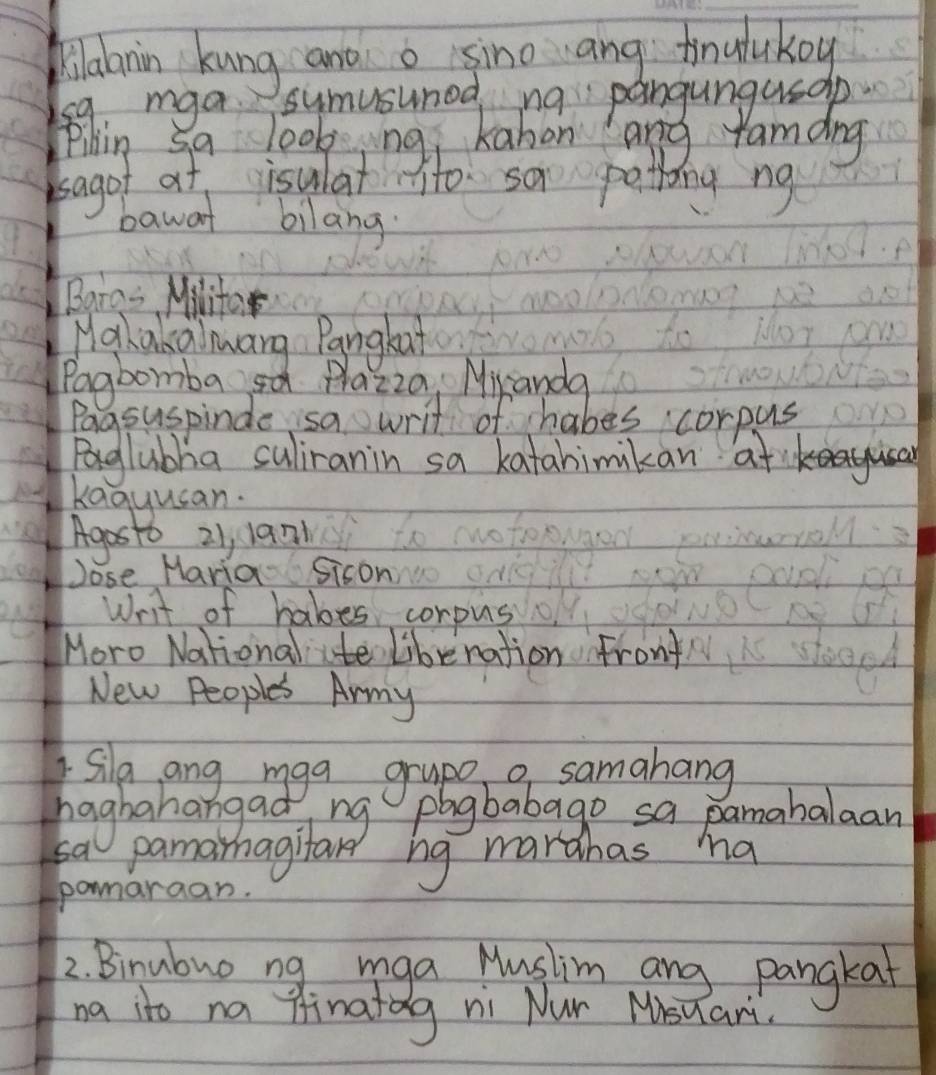 Kilalanin kung ano o sino ang tinutukoy
sa mga sumusunod na pangungusap.
Piliin sa loob ng kahon ang tamang
sagot at isulat ito sa patlang ng
bawat bilang.
Batas Militar
Makakaliwang Pangkat
Pagbomba sa Plazza Miranda
Pagsuspinde sa writ of habes corpus
Paglubha suliranin sa katahimikan at
kaayusan.
Agosto 21, 1971
Jose Maria Sison
Writ of habes corpus
Moro National te Liberation Front
New People's Army
1. Sila ang mga grupo o samahang
naghahangad ng pagbabago sa pamahalaan
sa pamamagitan ng marahas na
pamaraan.
2. Binubuo ng mga Muslim ang pangkat
na ito na itinatag ni Nur Misuari.